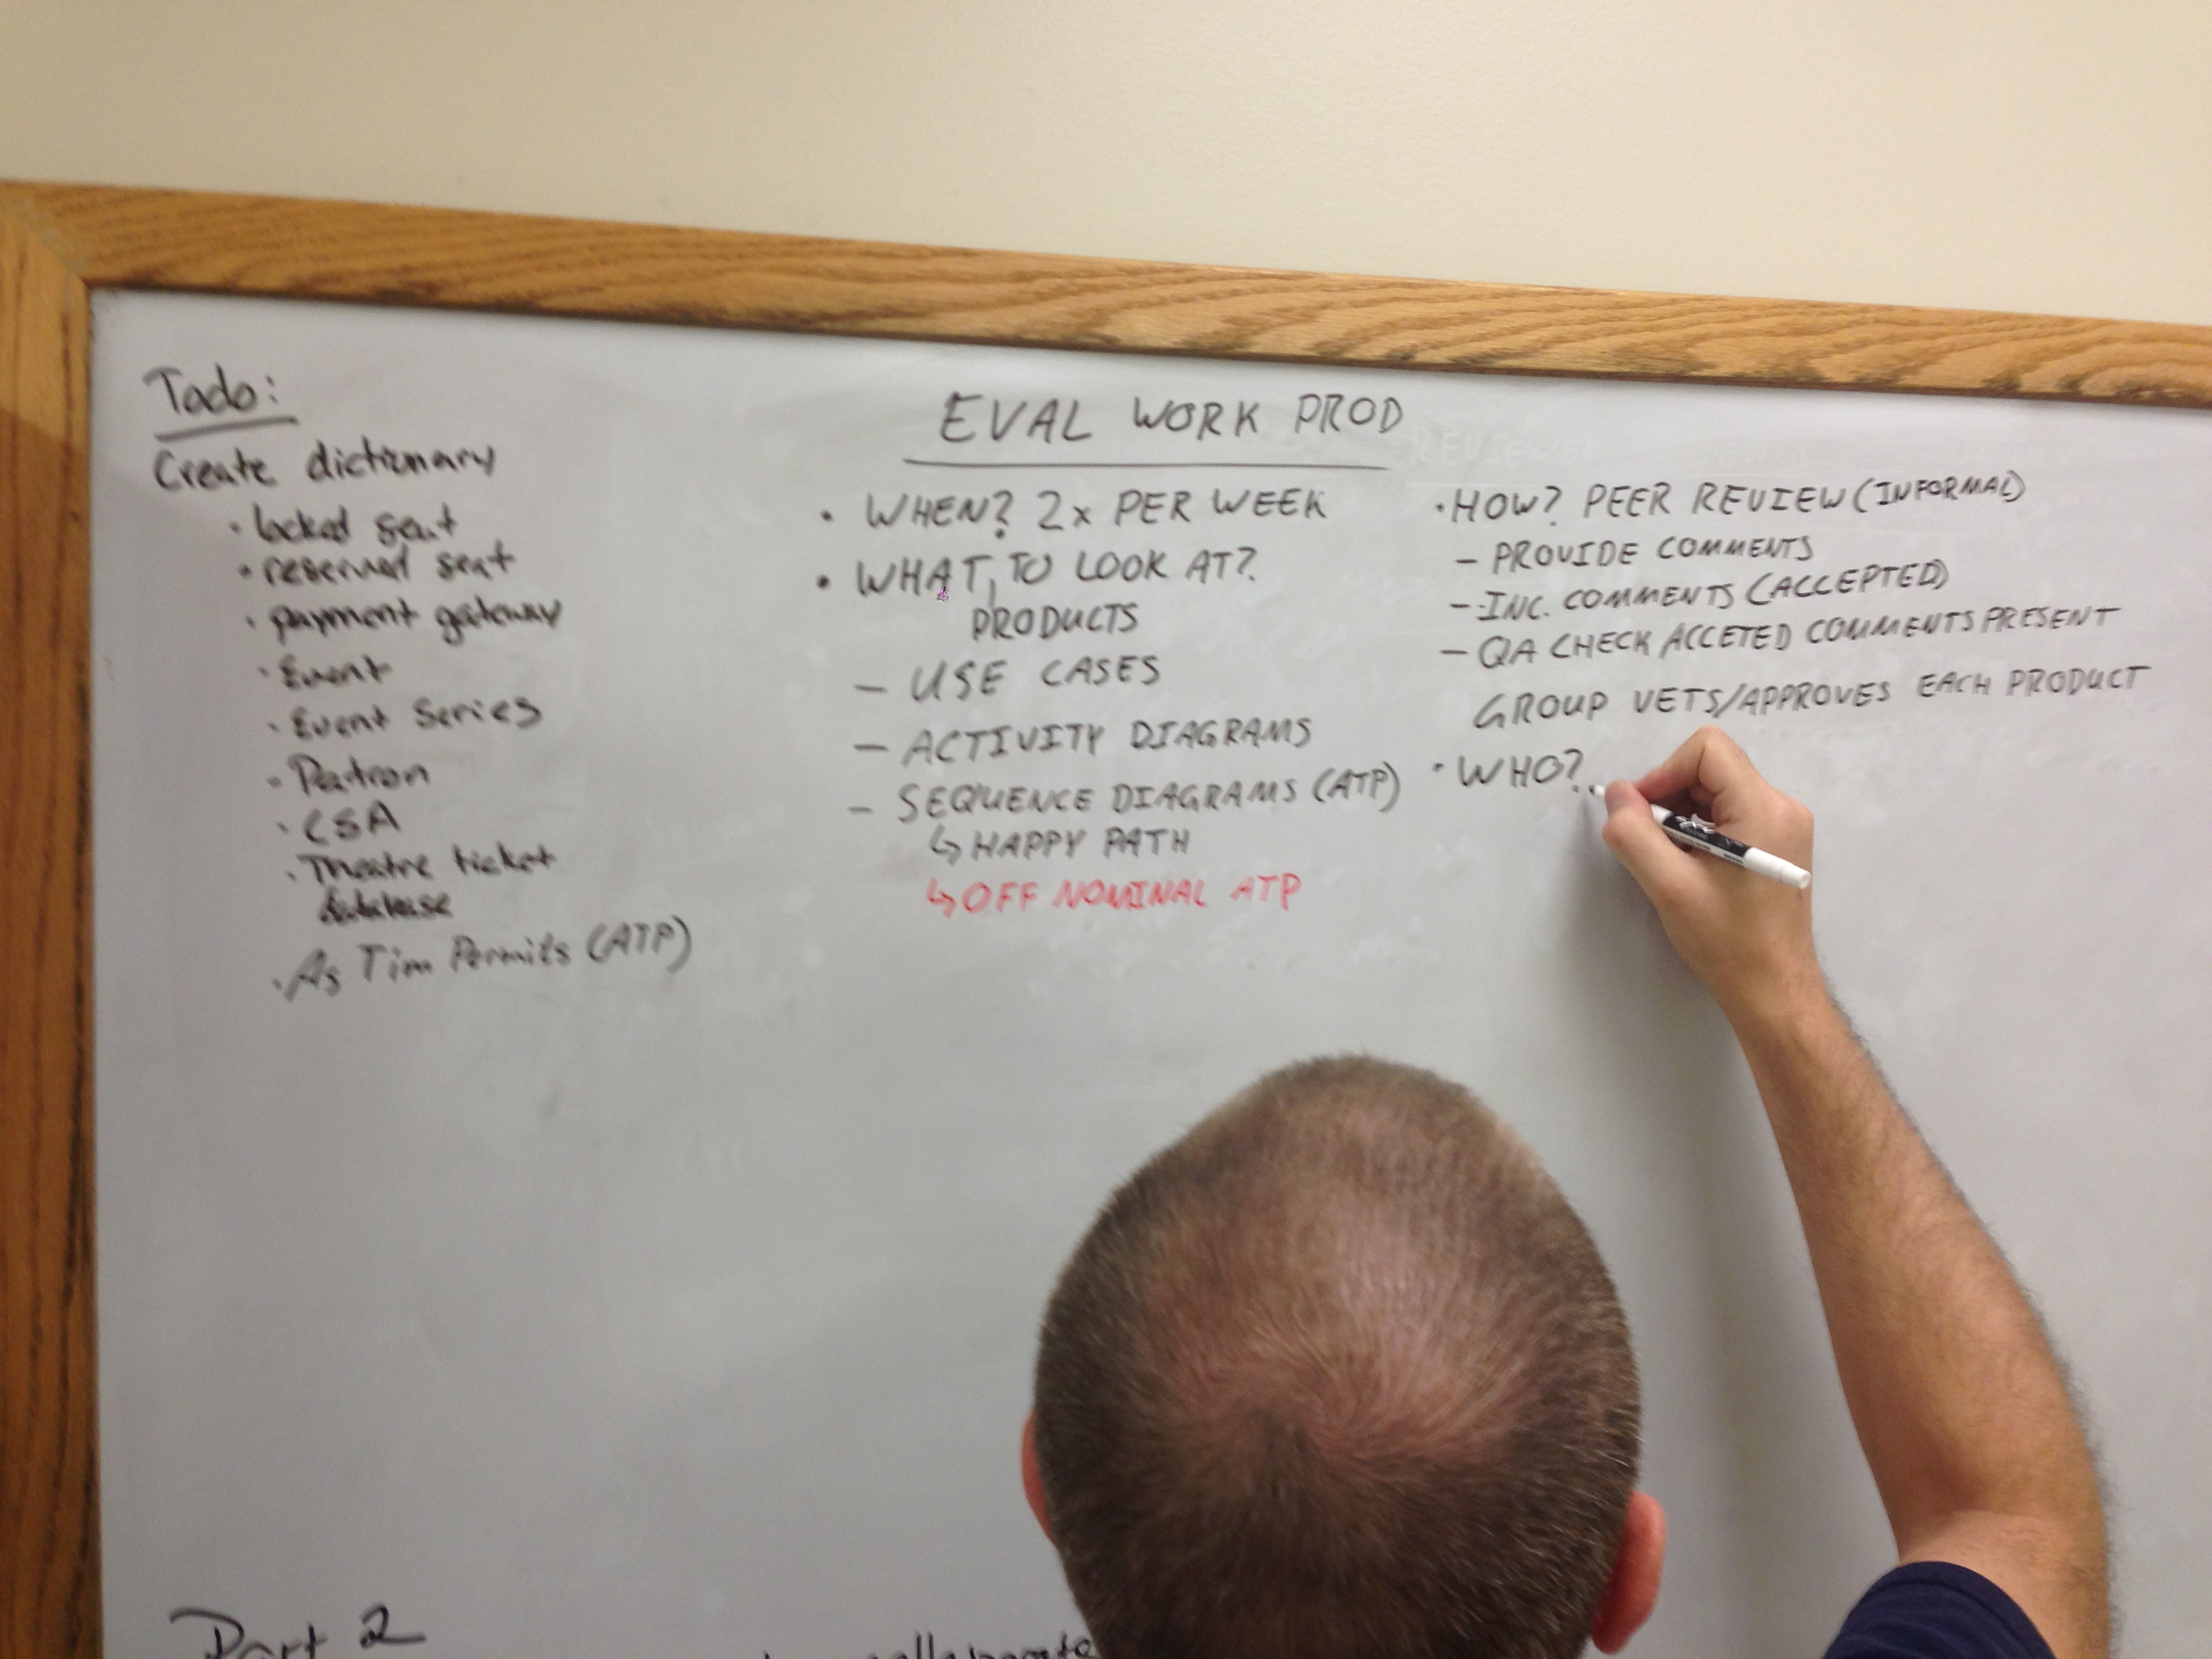 Todo:
Create dictionary
• locked seat
• reserved seat
• payment gateway
• Event
• Event Series
• Patron
• CSA
• Theatre ticket
database
• As Tim Permits (ATP)
EVAL WORK PROD
• WHEN? 2x PER WEEK
• WHAT, TO LOOK AT?
PRODUCTS
— USE CASES
— ACTIVITY DIAGRAMS
— SEQUENCE DIAGRAMS (ATP)
↳ HAPPY PATH
↳ OFF NOMINAL ATP
• HOW? PEER REVIEW (INFORMAL)
— PROVIDE COMMENTS
— INC. COMMENTS (ACCEPTED)
— QA CHECK ACCETED COMMENTS PRESENT
GROUP VETS/APPROVES EACH PRODUCT
• WHO?
Part 2
collaborate